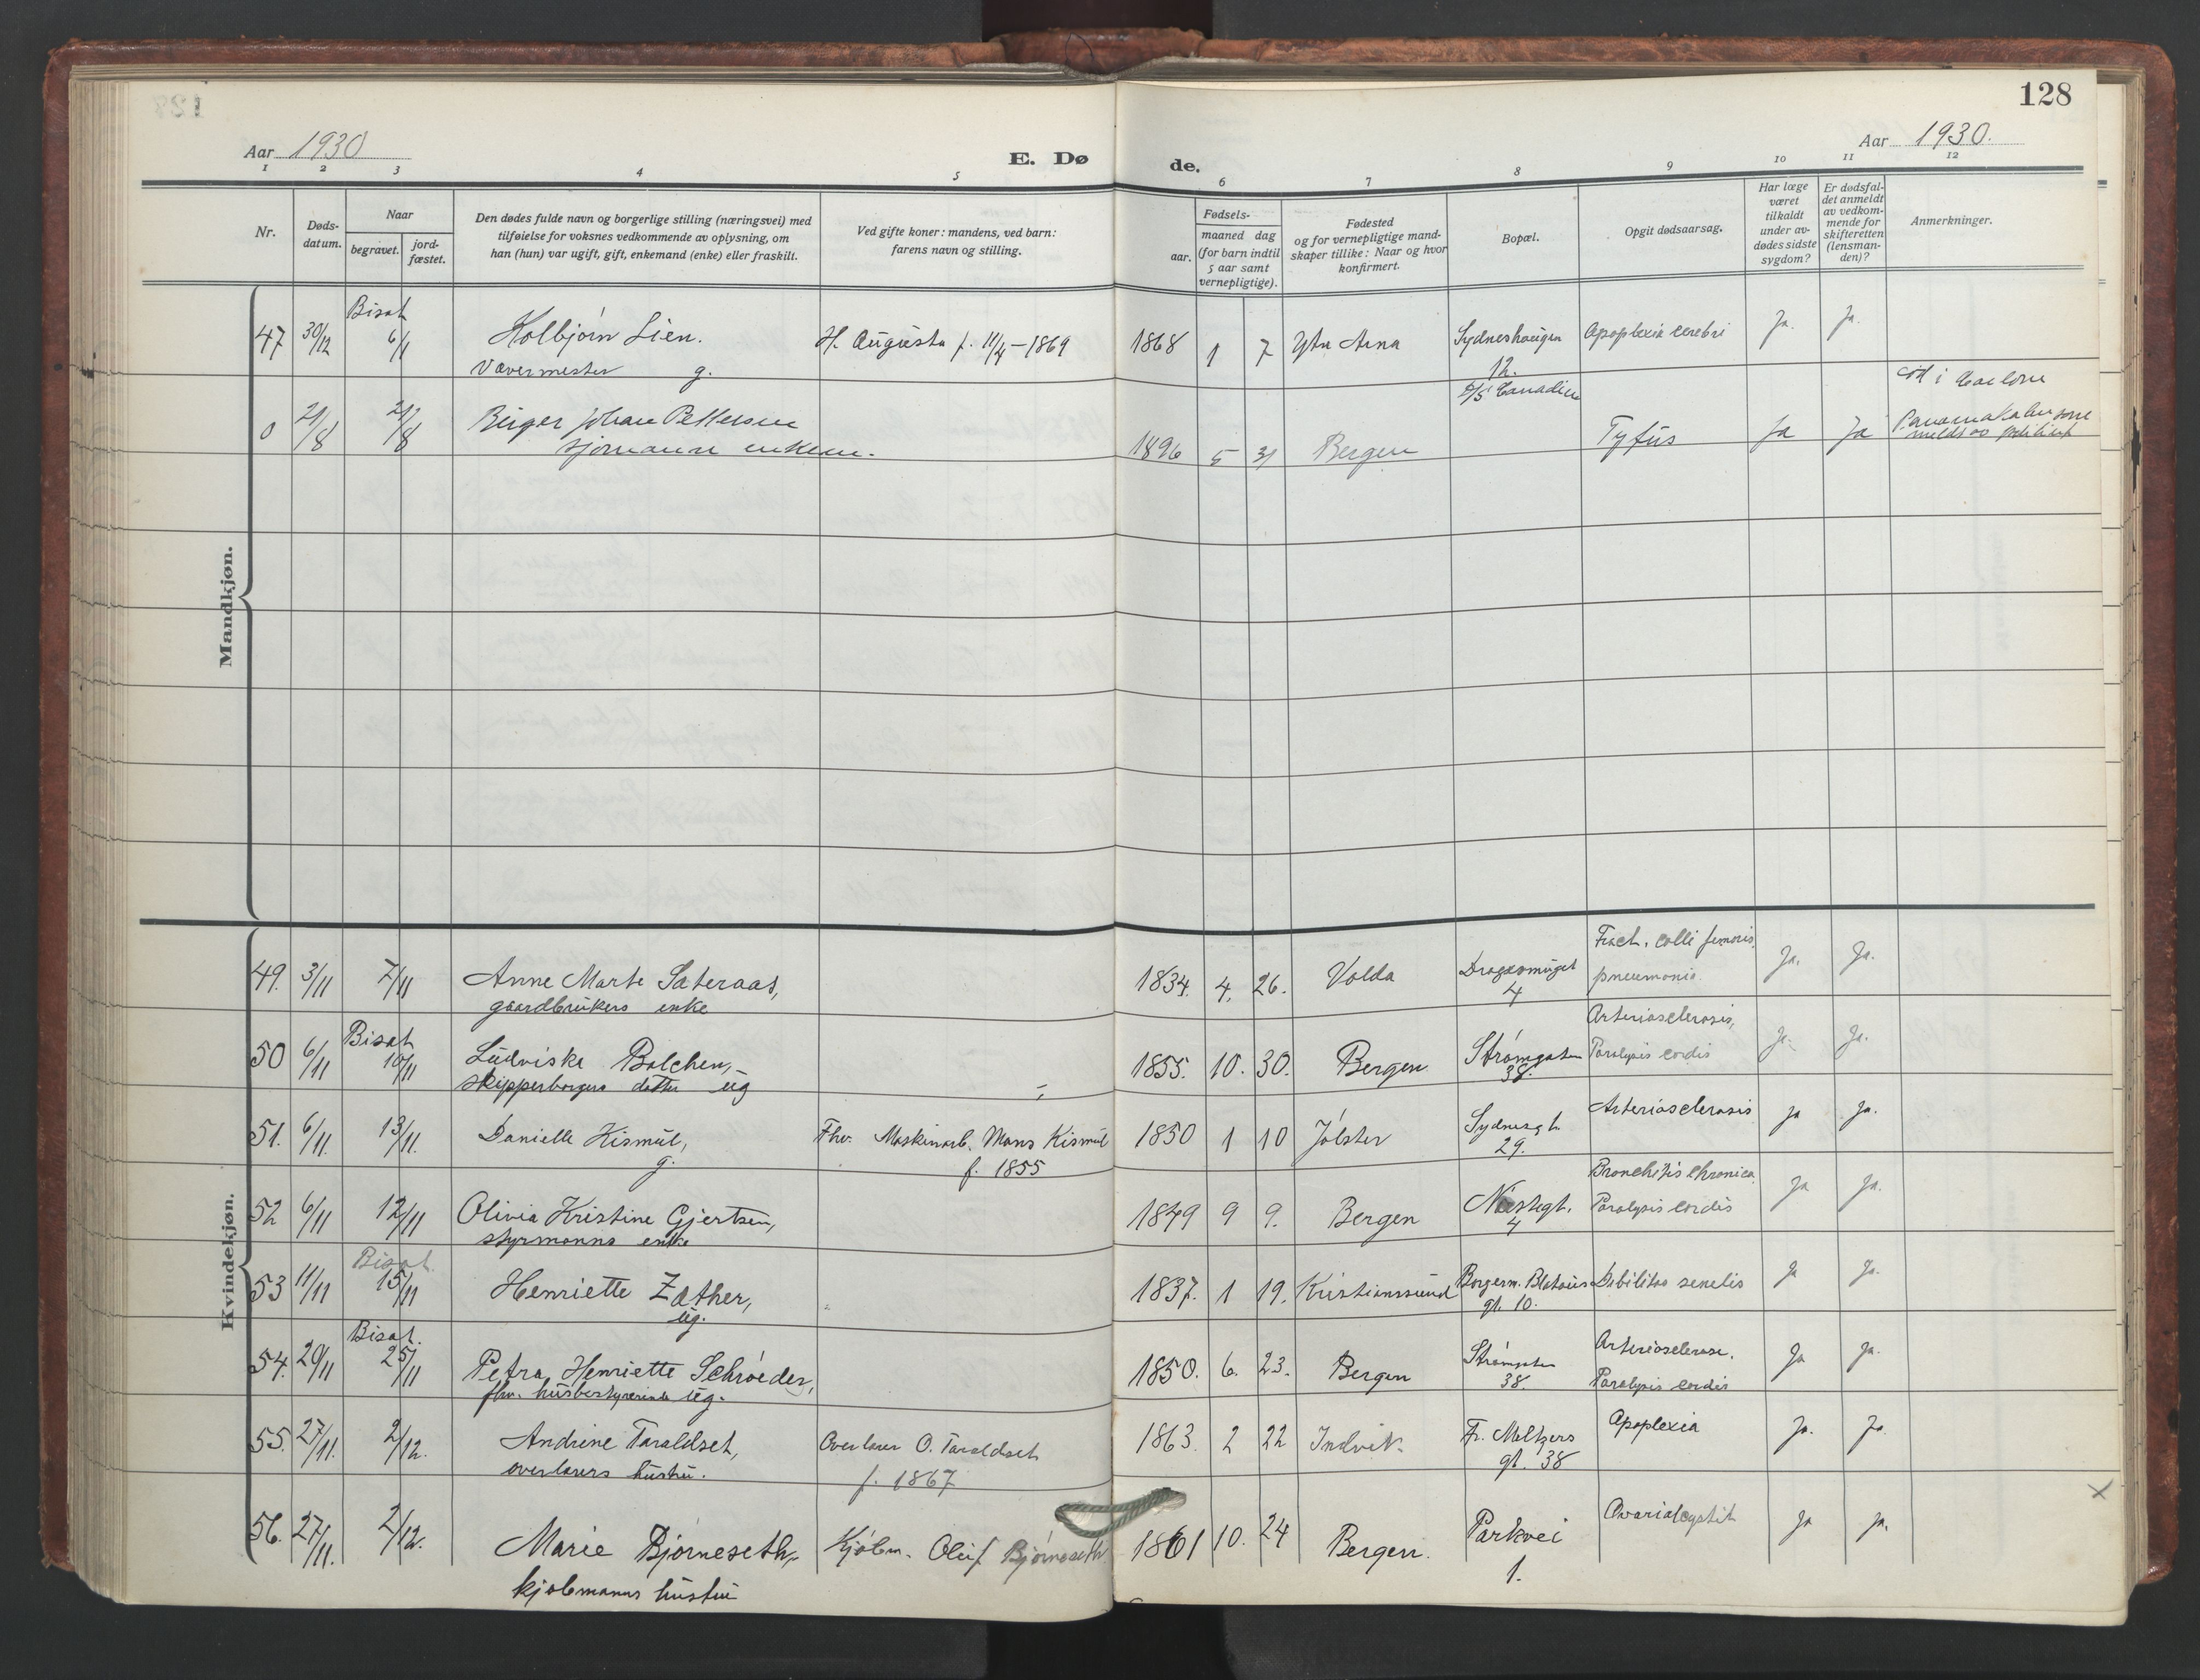 128
Aar 1930
E. Dø de.
Aar 1930.
1 2 3 4 5 6 7 8 9 10 11 12
Nr.
Døds-
datum.
Naar
begravet.
jord-
fæstet.
Den dødes fulde navn og borgerlige stilling (næringsvei) med
tilføielse for voksnes vedkommende av oplysning, om
han (hun) var ugift, gift, enkemand (enke) eller fraskilt.
Ved gifte koner: mandens, ved barn:
farens navn og stilling.
Fødsels-
aar.
maaned dag
(for barn indtil
5 aar samt
vernepligtige).
Fødested
og for vernepligtige mand-
skaper tillike: Naar og hvor
konfirmert.
Bopæl.
Opgit dødsaarsag.
Har læge
været
tilkaldt
under av-
dødes sidste
sygdom?
Er dødsfal-
det anmeldt
av vedkom-
mende for
skifteretten
(lensman-
den)?
Anmerkninger.
Mandkjøn.
Bisat
47 30/12 6/1 Kolbjørn Lien. H. Augusta f. 11/4 – 1869 1868 1 7 Ytr Arna Sydneshaugen Apoplexia cerebri Ja. Ja.
Vævermester g. 12.
0 21/8 21/8 Birger Johan Pettersen 1896 5 31 Bergen Tyfus Ja Ja
sjømann enkem.
Kvindekjøn.
Fract. colli femoris,
49. 3/11 7/11 Anne Marte Sateraas, 1834. 4. 26. Volda Dragesmuget pneumonia. Ja. Ja.
gaardbrukers enke 4
Bisat Arteriosclerosis,
50 6/11 10/11 Ludviska Bolchen, 1855. 10. 30. Bergen Strømgaten Paralysis cordis Ja. Ja.
skipperborgers datter ug 38.
51. 6/11. 13/11. Danielle Kismul, Fhv. Maskinarb. Mons Kismul 1850 1 10 Jølster Sydnesgt. Arteriosclerosis Ja Ja.
g. f. 1855 29.
Bronchitis chronica.
52 6/11 12/11 Olivia Kristine Gjertsen, 1849 9 9. Bergen Nøstegt. Paralysis cordis Ja Ja.
styrmanns enke 4
Bisat.
53 11/11 15/11 Henriette Zather, 1837. 1 19. Kristianssund Borgerm. Platous Debilitas senilis Ja Ja.
ug. gt. 10.
Bisat. Arteriosclerose.
54. 20/11 25/11 Petra Henriette Schrøder, 1850. 6. 23. Bergen Strømgaten Paralysis cordis Ja Ja.
fhv. husbestyrerinde ug. 38.
55. 27/11. 2/12. Andrine Taraldset, Overlærer O. Taraldset 1863 2 22 Indvik. Fr. Meltzers Apoplexia Ja. Ja.
overlærers hustru. f. 1867 gt. 38
x
56. 27/11. 2/12. Marie Bjørneseth, Kjøbm. Oluf Bjørneseth 1861 10. 24 Bergen. Parkvei Ovarialcystit Ja Ja.
kjøbmanns hustru 1.